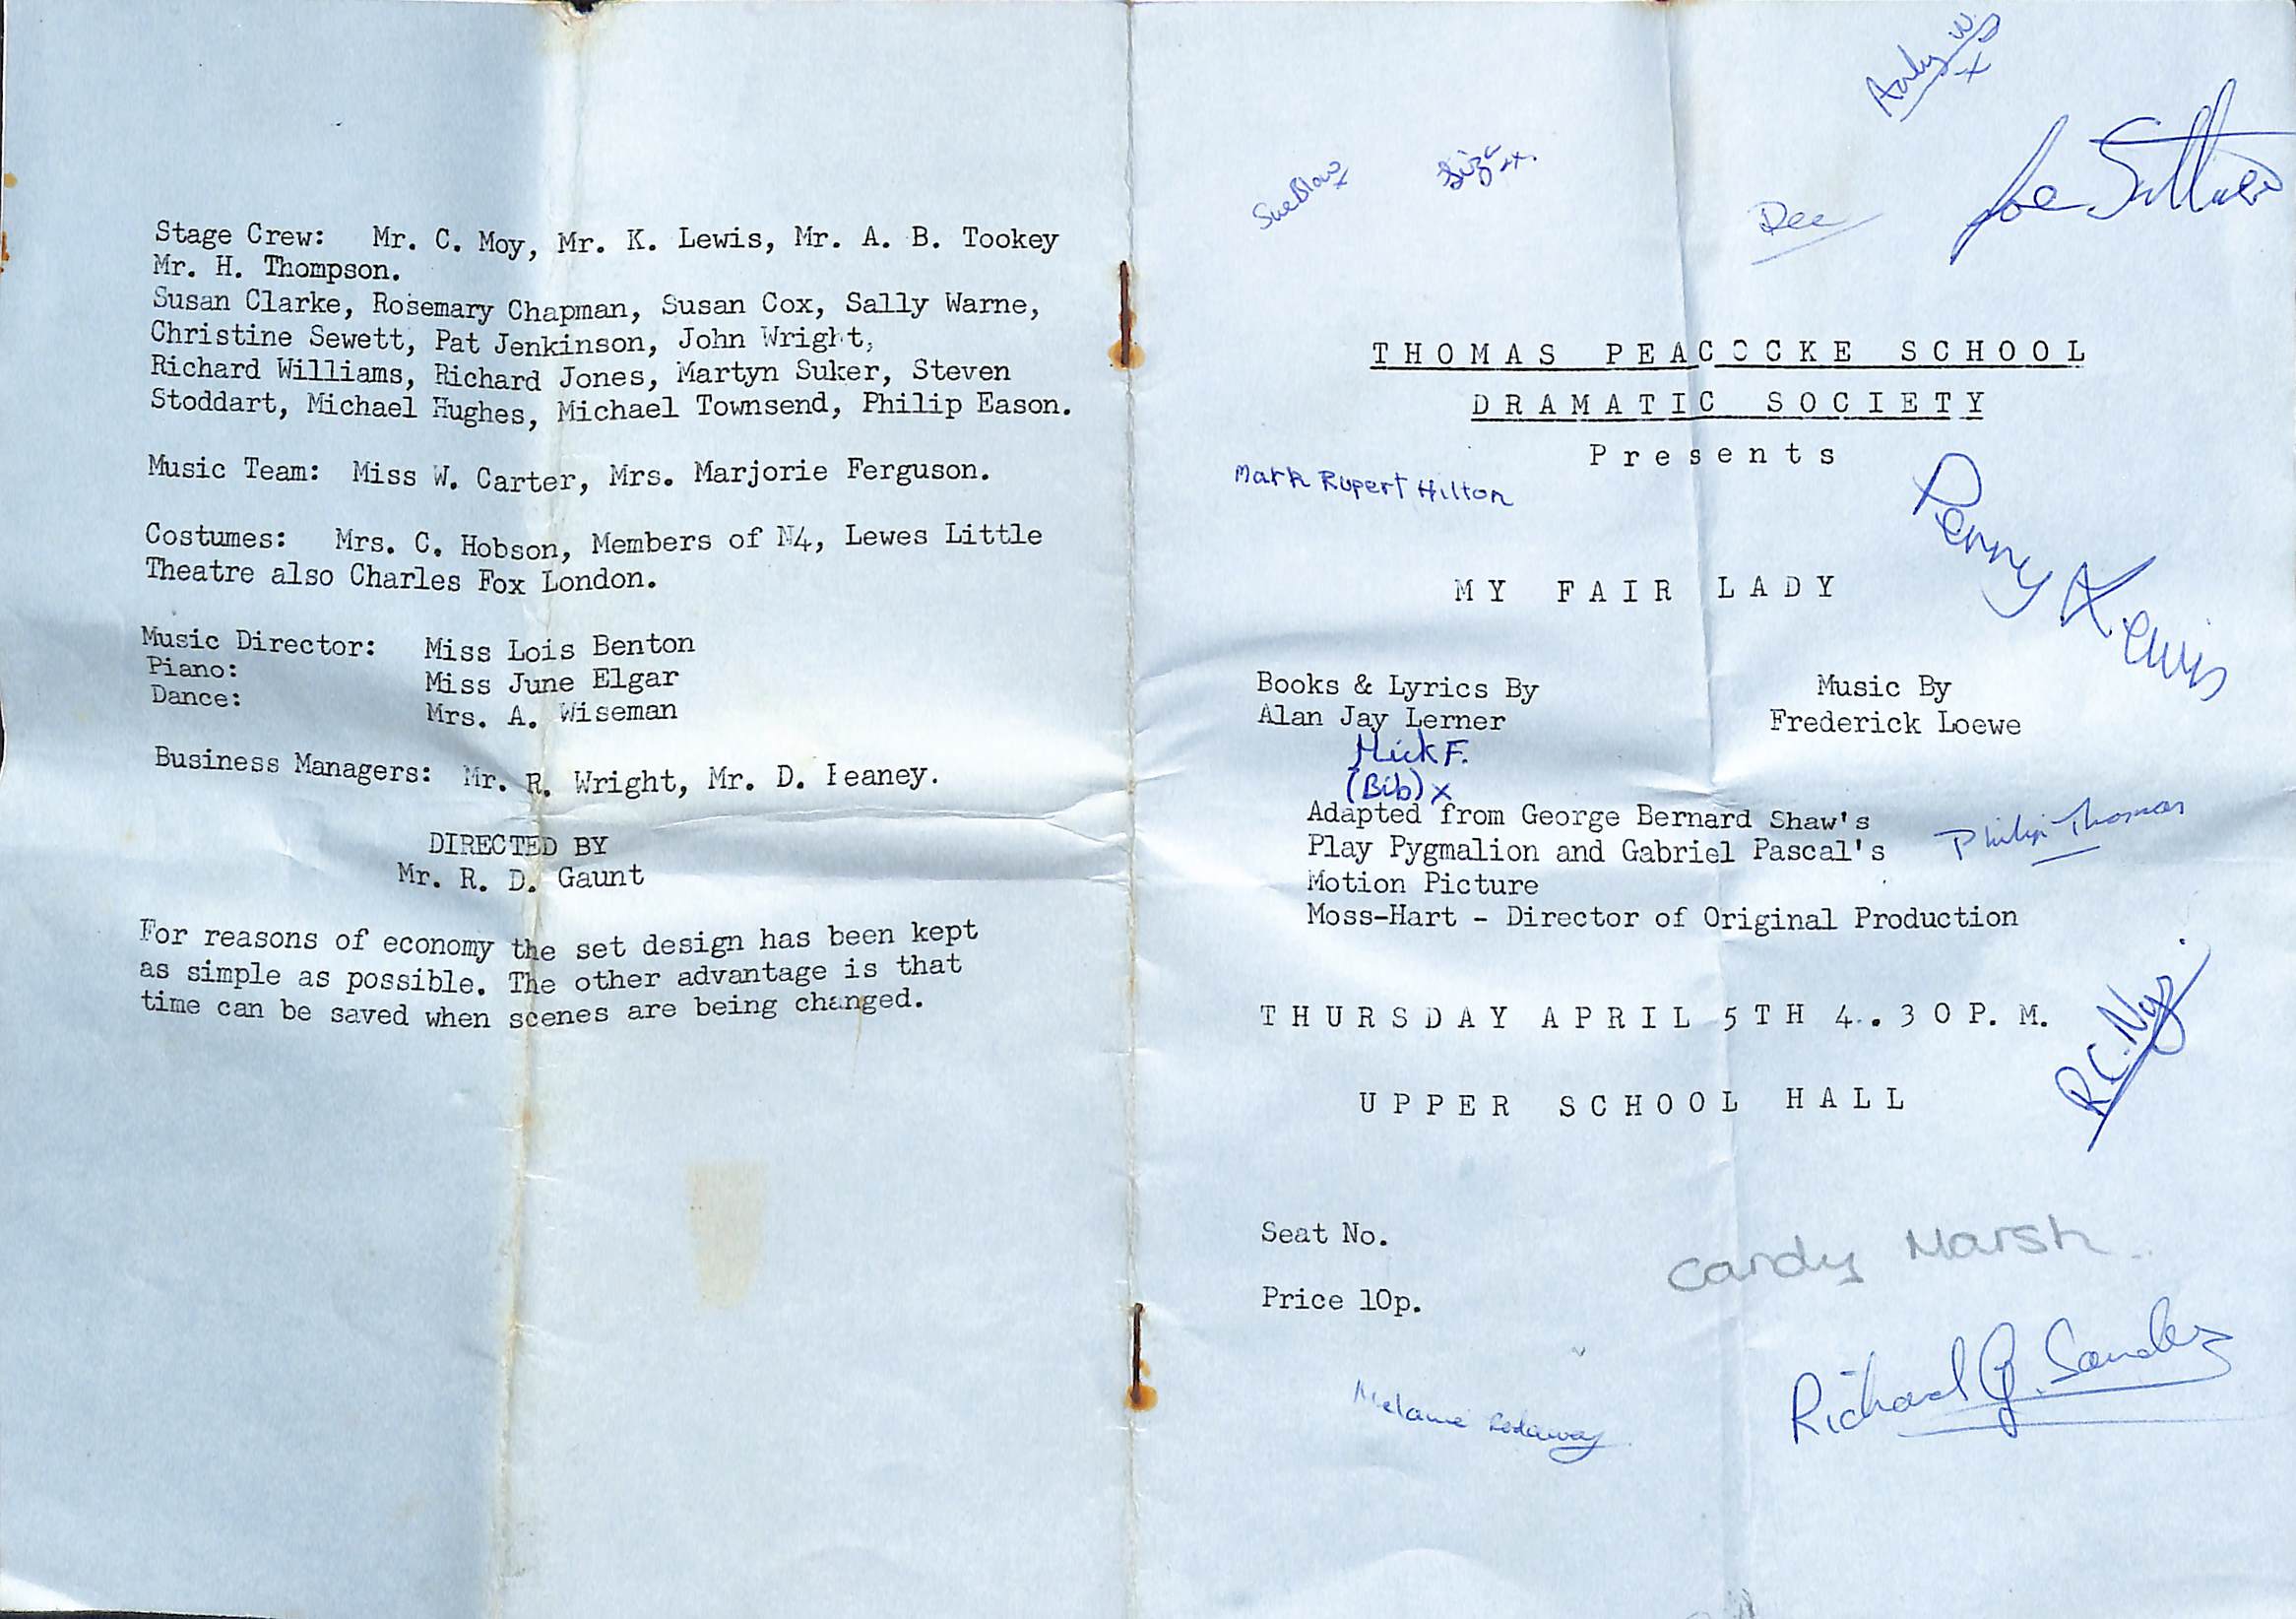 Stage Crew: Mr. C. Moy, Mr. K. Lewis, Mr. A. B. Tookey
Mr. H. Thompson.
Susan Clarke, Rosemary Chapman, Susan Cox, Sally Warne,
Christine Sewett, Pat Jenkinson, John Wright,
Richard Williams, Richard Jones, Martyn Suker, Steven
Stoddart, Michael Hughes, Michael Townsend, Philip Eason.
Music Team: Miss W. Carter, Mrs. Marjorie Ferguson.
Costumes: Mrs. C. Hobson, Members of N4, Lewes Little
Theatre also Charles Fox London.
Music Director: Miss Lois Benton
Piano: Miss June Elgar
Dance: Mrs. A. Wiseman
Business Managers: Mr. R. Wright, Mr. D.
DIRECTED BY
Mr. R. D. Gaunt
For reasons of economy the set design has been kept
as simple as possible. The other advantage is that
time can be saved when scenes are being changed.
Andy W
x
Sue Blow
x
Dee
Joe
THOMAS PEACOCKE SCHOOL
DRAMATIC SOCIETY
Presents
Mark Rupert Hilton
Penny Lewis
MY FAIR LADY
Books & Lyrics By
Alan Jay Lerner
Music By
Frederick Loewe
Mick F.
(Bib) x
Adapted from George Bernard Shaw's
Play Pygmalion and Gabriel Pascal's
Motion Picture
Moss-Hart - Director of Original Production
Philip Thomas
THURSDAY APRIL 5TH 4.30P.M.
R.C. Nye
UPPER SCHOOL HALL
Seat No.
Candy Marsh
Price 10p.
Richard G. Sandez
Melanie Rodaway